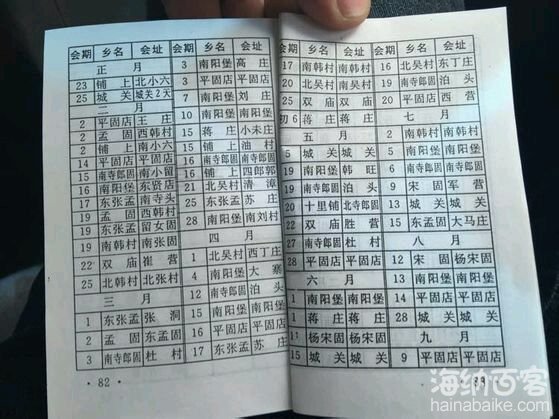 会期 乡名 会址
正 月
23 铺上 北小六
25 城关 城关2天
二 月
2 平固店 王庄
2 孟固 西韩村
2 铺上 南小六
14 平固店 平固店
15 南寺郎固 南小留
16 南阳堡 东贤店
17 东张孟 南寺头
19 孟固 西韩村
19 东张孟 留女固
19 南韩村 南张固
22 双庙 崔营
25 北韩村 北张村
三 月
1 东张孟 张洞
2 孟固 东孟固
3 南寺郎固 杜村
会期 乡名 会址
3 南阳堡 高庄
3 平固店 平固店
7 南阳堡 刘庄
10 南阳堡 南阳堡
15 蒋庄 小未庄
15 铺上 油村
16 南寺郎固 南寺郎固
18 铺上 四郎郭
21 北吴村 清漳
25 东张孟 苏庄
28 南阳堡 南刘村
四 月
1 北吴村 西丁庄
4 南阳堡 大寨
12 南寺郎固 泊头
16 平固店 平固店
17 东张孟 苏庄
·82·
会期 乡名 会址
17 南韩村 南韩村
20 南韩村 南吴村
25 双庙 双庙
初6 蒋庄 蒋庄
五 月
5 城关 城关
19 南阳堡 韩旺
19 南寺郎固 泊头
20 十里铺 北寺郎固
22 双庙 胜营
27 南寺郎固 杜村
28 平固店 平固店
六 月
1 南阳堡 南阳堡
1 蒋庄 蒋庄
11 杨宋固 杨宋固
15 城关 城关
会期 乡名 会址
16 北吴村 东丁庄
19 南寺郎固 泊头
20 平固店 西营
七 月
2 南韩村 南韩村
6 南寺郎固 南寺郎固
9 宋固 军营
13 城关 城关
15 东孟固 大马庄
八 月
12 宋固 杨宋固
13 南阳堡 南阳堡
14 平固店 平固店
28 城关 城关
九 月
9 平固店 平固店
海纳百客
hainabaike.com